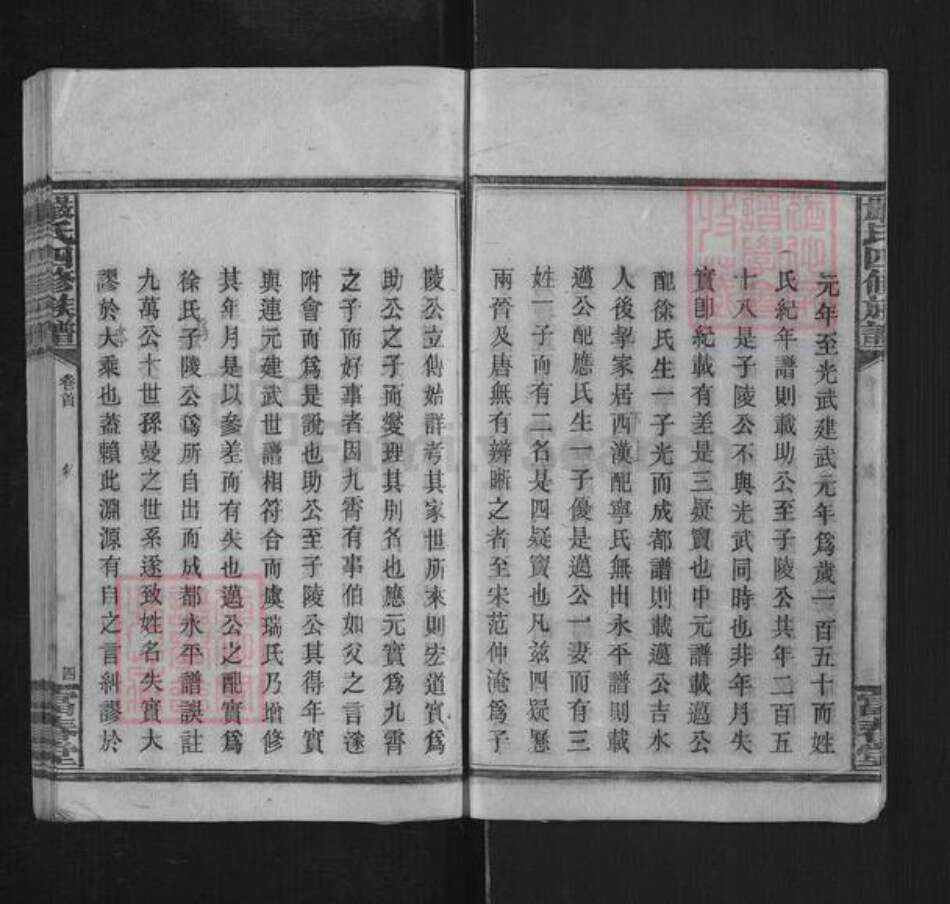 元年至光武建武元年爲歲一百五十而姓
氏紀年譜則載助公至子陵公共年二百五
十八是子陵公不與光武同時也非年月失
實卽紀載有差是三疑竇也中元譜載邁公
配徐氏生一子光而成都譜則載邁公吉水
人後挈家居西漢配寧氏無出永平譜則載
邁公配應氏生一子優是邁公一妻而有三
姓一子而有二名是四疑竇也凡茲四疑懸
兩晉及唐無有辨晰之者至宋范仲淹爲子
嚴氏四修族譜
卷首
四
富春堂
陵公立傳始詳考其家世所來則宏道實爲
助公之子而燮理其別名也應元實爲九霄
之子而好事者因九霄有事伯如父之言遂
附會而爲是說也助公至子陵公其得年實
與連元建武世譜相符合而虞瑞氏乃增修
其年月是以參差而有失也邁公之配實爲
徐氏子陵公爲所自出而成都永平譜誤註
九萬公十世孫曼之世系遂致姓名失實大
謬於大乘也蓋賴此淵源有自之言糾謬於
嚴氏四修族譜
卷首
四
富春堂
FamilySearch